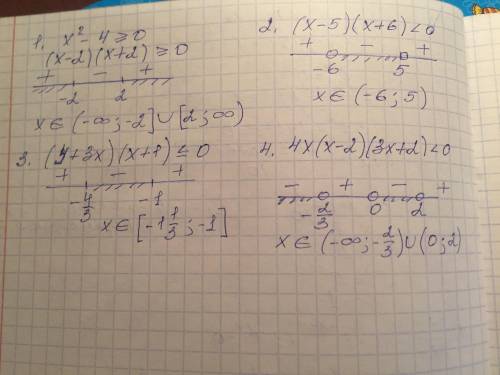 1. x² - 4 ⩾ 0
(x-2)(x+2) ⩾ 0
+ - +
-2 2
x ∈ (-∞; -2] ∪ [2; ∞)
2. (x-5)(x+6) < 0
+ - +
-6 5
x ∈ (-6; 5)
3. (4+3x)(x+1) ≤ 0
+ - +
-4/3 -1
x ∈ [-1 1/3; -1]
4. 4x(x-2)(3x+2) < 0
- + - +
-2/3 0 2
x ∈ (-∞; -2/3) ∪ (0; 2)